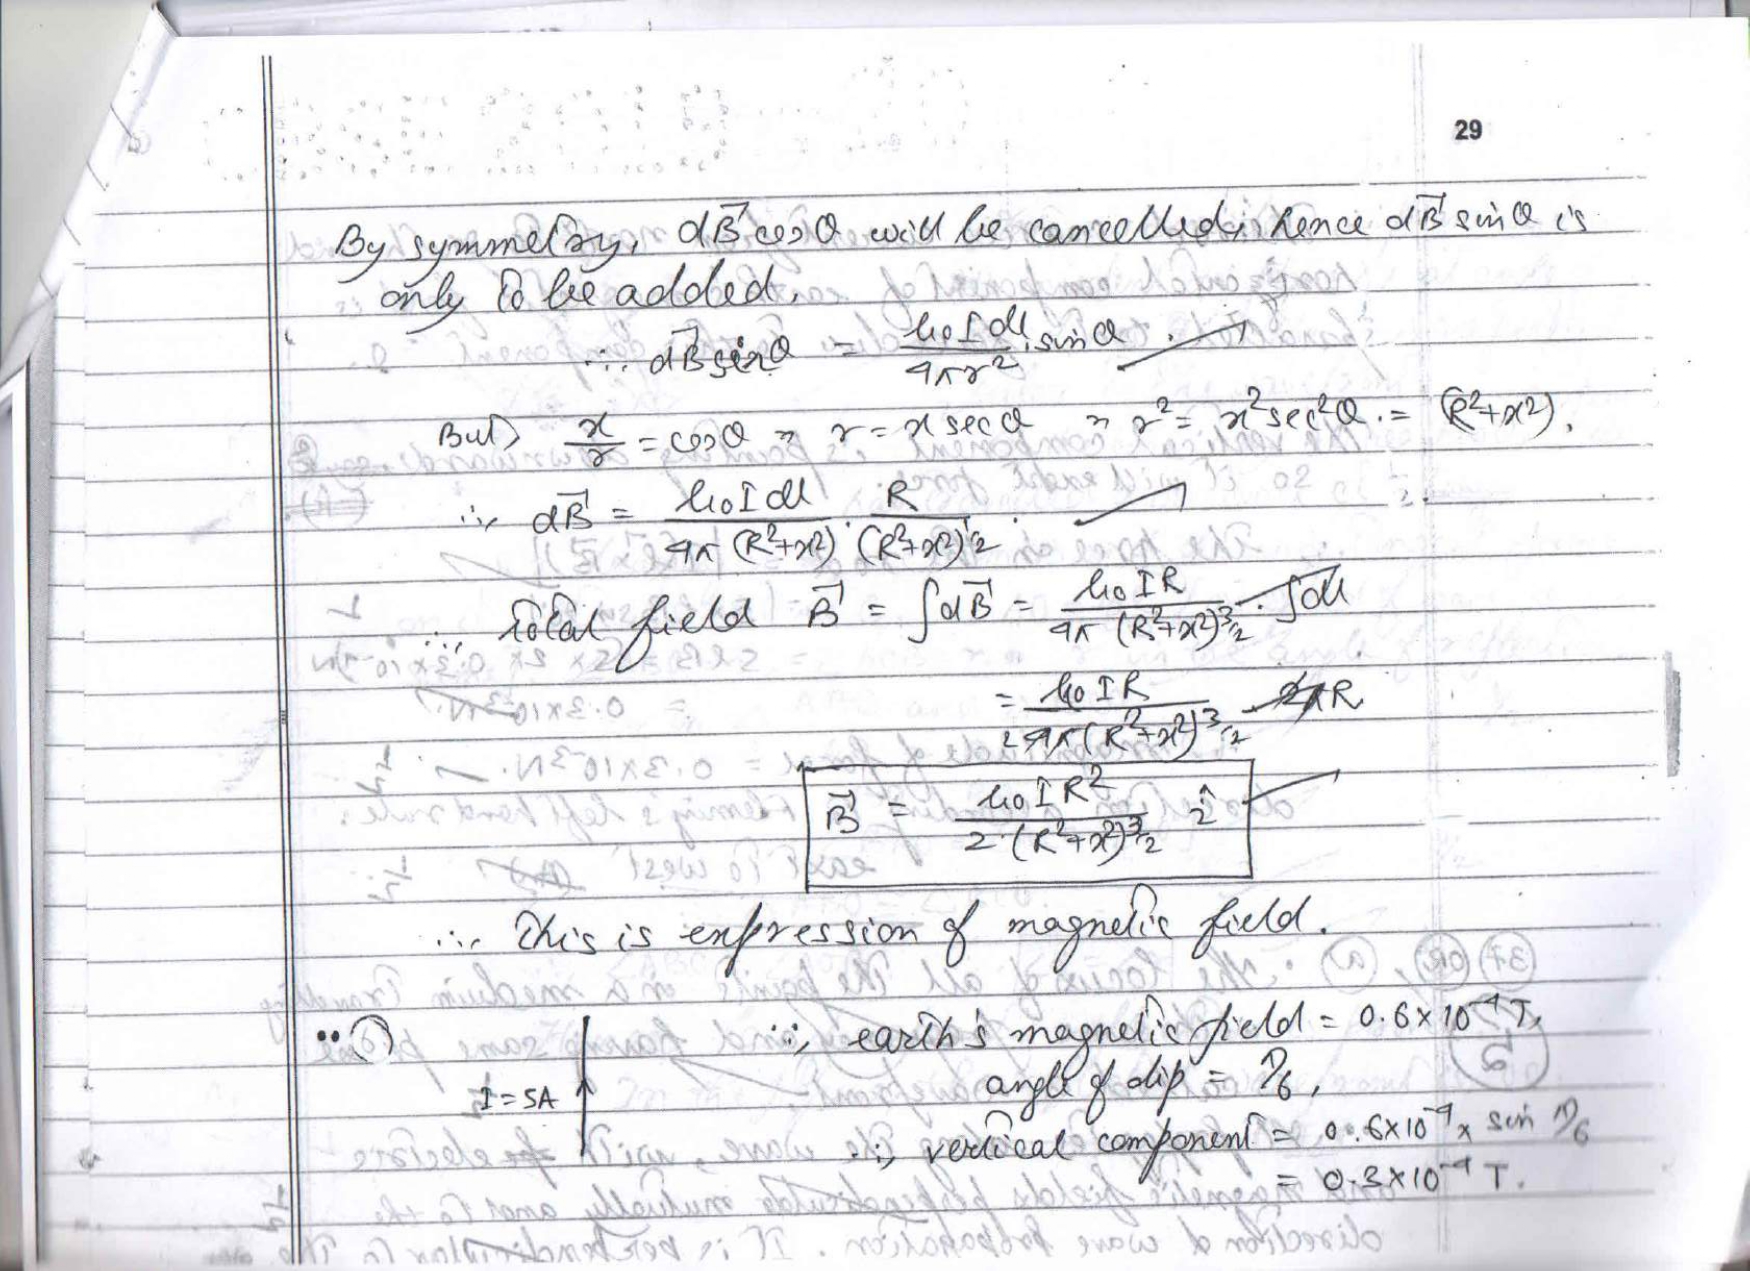 29
By symmetry, dB⃗ cosθ will be cancelled, hence dB⃗ sinθ is
only to be added.
∴ dB⃗ sinθ = μ0 I dl / 4πr² . sinθ .
But, x/r = cosθ ⇒ r = x secθ ⇒ r² = x² sec²θ . = (R²+x²).
∴ dB⃗ = μ0 I dl / 4π (R²+x²) . R / (R²+x²)^1/2 .
∴ Total field B⃗ = ∫dB⃗ = μ0 I R / 4π (R²+x²)^3/2 . ∫dl
= μ0 I R / 4π (R²+x²)^3/2 2πR
B⃗ = μ0 I R² / 2 . (R²+x²)^3/2 î
∴ This is expression of magnetic field.
I = 5A
∴ earth's magnetic field = 0.6 × 10⁻⁴ T,
angle of dip = π/6,
∴ vertical component = 0.6×10⁻⁴ × sin π/6
= 0.3×10⁻⁴ T.